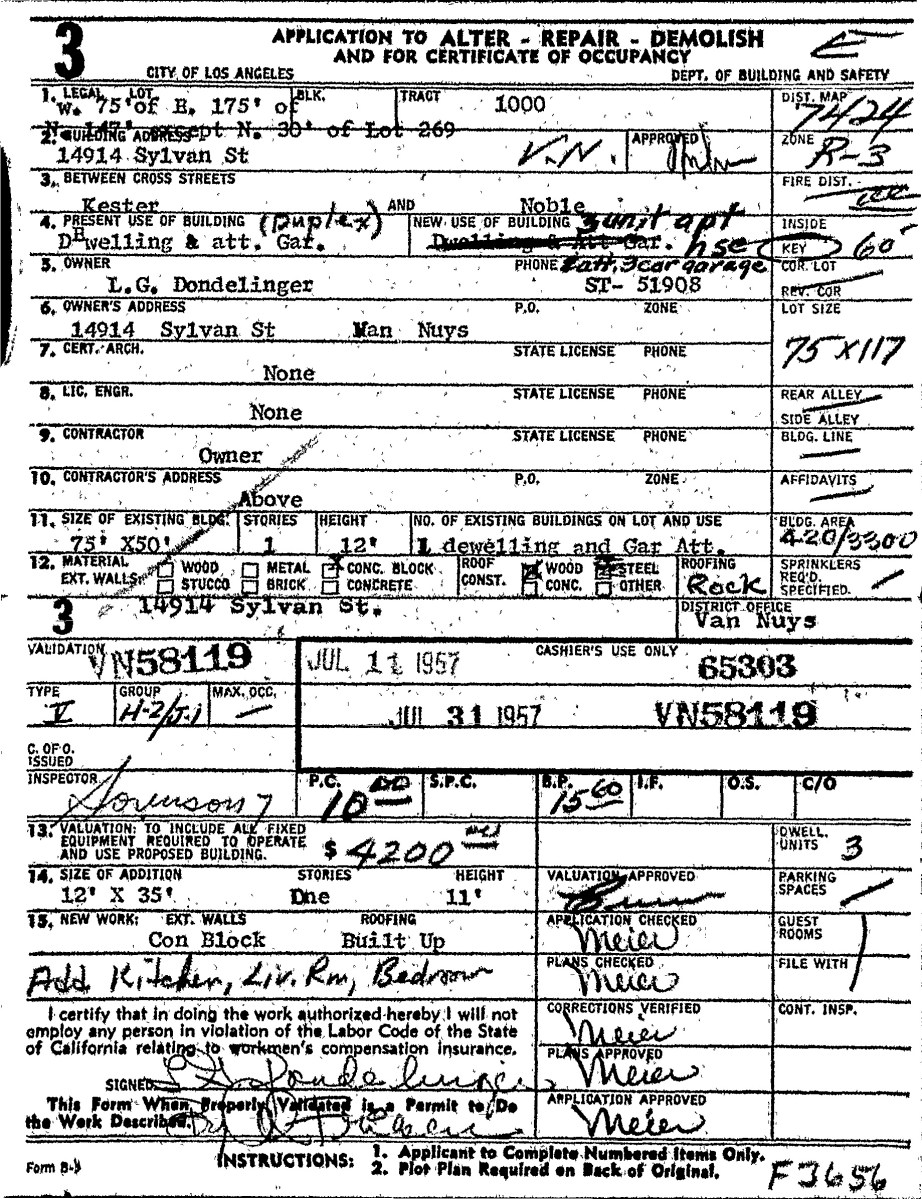 3
APPLICATION TO ALTER - REPAIR - DEMOLISH
AND FOR CERTIFICATE OF OCCUPANCY
CITY OF LOS ANGELES DEPT. OF BUILDING AND SAFETY
1. LEGAL LOT BLK. TRACT DIST. MAP
W. 75' of E. 175' of 1000 7424
N. 147' except N. 30' of Lot 269
2. BUILDING ADDRESS APPROVED ZONE
14914 Sylvan St V.N. R-3
3. BETWEEN CROSS STREETS FIRE DIST.
Kester AND Noble
4. PRESENT USE OF BUILDING (Duplex) NEW USE OF BUILDING 3 unit apt INSIDE
Dwelling & att. Gar. Dwelling & Att Gar. hse KEY 60'
5. OWNER PHONE & att, 3 car garage COR. LOT
L.G. Dondelinger ST- 51908 REV. COR
6. OWNER'S ADDRESS P.O. ZONE LOT SIZE
14914 Sylvan St Van Nuys
7. CERT. ARCH. STATE LICENSE PHONE 75 X 117
None
8. LIC. ENGR. STATE LICENSE PHONE REAR ALLEY
None SIDE ALLEY
9. CONTRACTOR STATE LICENSE PHONE BLDG. LINE
Owner
10. CONTRACTOR'S ADDRESS P.O. ZONE AFFIDAVITS
Above
11. SIZE OF EXISTING BLDG. STORIES HEIGHT NO. OF EXISTING BUILDINGS ON LOT AND USE BLDG. AREA
75' X50' 1 12' 1 dewelling and Gar Att. 420/3300
12. MATERIAL WOOD METAL CONC. BLOCK ROOF WOOD STEEL ROOFING SPRINKLERS
EXT. WALLS: STUCCO BRICK CONCRETE CONST. CONC. OTHER Rock REQ'D. SPECIFIED.
3 14914 Sylvan St. DISTRICT OFFICE
Van Nuys
VALIDATION CASHIER'S USE ONLY
VN58119 JUL 11 1957 65303
TYPE GROUP MAX. OCC.
V H-2/J-1 JUL 31 1957 VN58119
C. OF O.
ISSUED
INSPECTOR P.C. S.P.C. B.P. I.F. O.S. C/O
Sorenson 7 10 00 15 60
13. VALUATION: TO INCLUDE ALL FIXED DWELL.
EQUIPMENT REQUIRED TO OPERATE UNITS 3
AND USE PROPOSED BUILDING. $ 4200
14. SIZE OF ADDITION STORIES HEIGHT VALUATION APPROVED PARKING
12' X 35' One 11' SPACES
15. NEW WORK: EXT. WALLS ROOFING APPLICATION CHECKED GUEST
Con Block Built Up Meier ROOMS
Add Kitchen, Liv. Rm, Bedroom PLANS CHECKED FILE WITH
Meier
I certify that in doing the work authorized hereby I will not CORRECTIONS VERIFIED CONT. INSP.
employ any person in violation of the Labor Code of the State Meier
of California relating to workmen's compensation insurance. PLANS APPROVED
SIGNED L G Dondelinger Meier
This Form When Properly Validated is a Permit to Do APPLICATION APPROVED
the Work Described. By Meier
INSTRUCTIONS: 1. Applicant to Complete Numbered Items Only.
Form B-3 2. Plot Plan Required on Back of Original. F3656